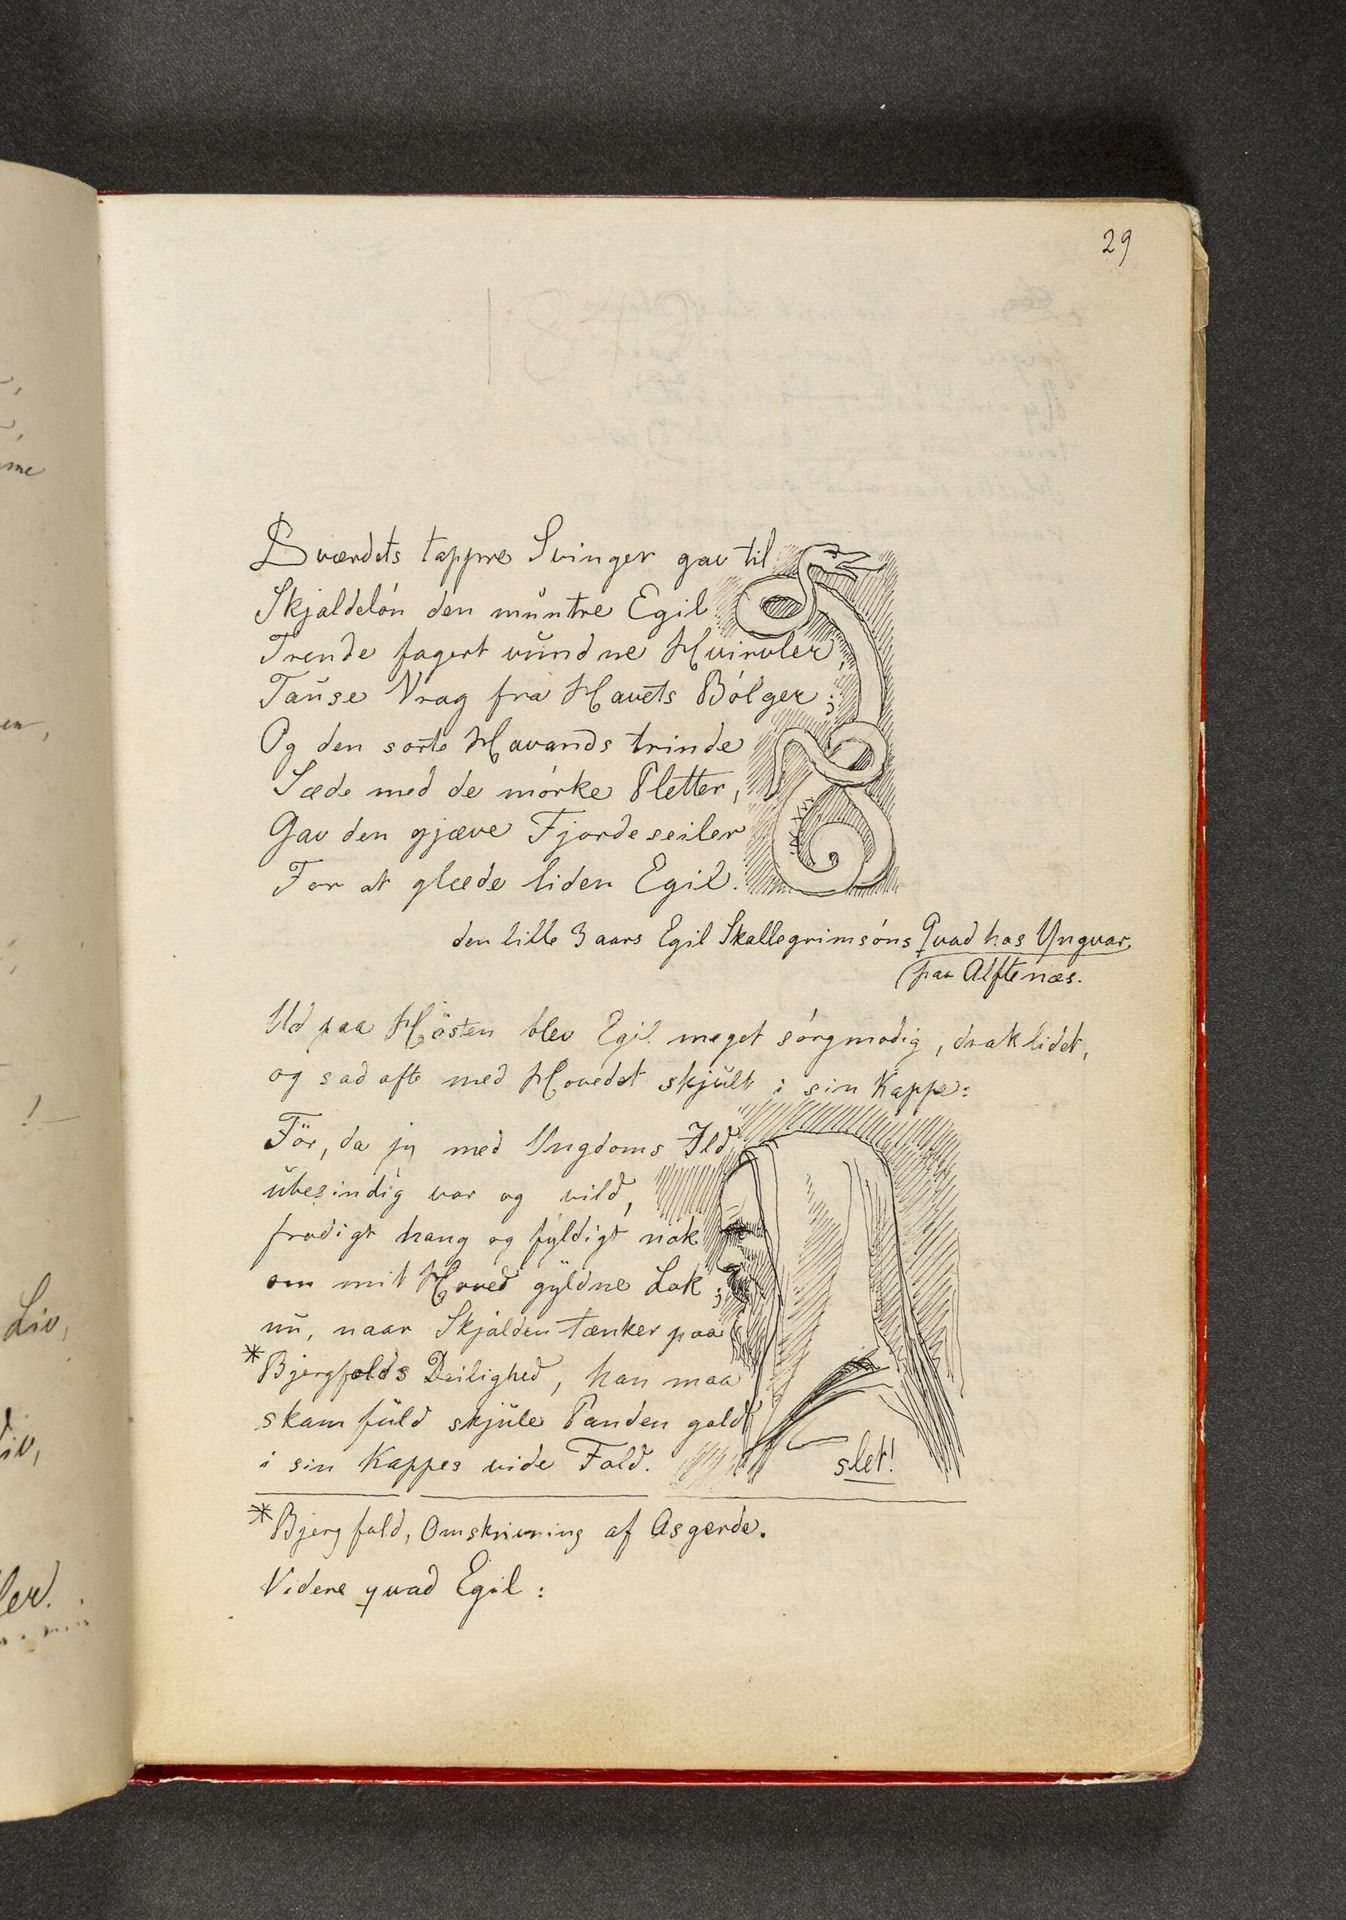 29
Sværdets tappre Svinger gav til
Skjaldelón den muntre Egil
Trende fagert vundne Hvirvler,
Tause Vrag fra Havets Bólger;
Og den sorte Havands trinde
Sæde med de mórke Pletter,
Gav den gjæve Fjordeseiler
For at glæde liden Egil.
den lille 3 aars Egil Skallegrimsóns Qvad hos Yngvar
paa Alftenæs.
Ud paa Hösten blev Egil meget sórgmodig, drak lidet,
og sad ofte med Hovedet skjult i sin Kappe:
För, da jeg med Ungdoms Ild
ubesindig var og vild,
frodigt hang og fyldigt nok
om mit Hoved gyldne Lok;
nu, naar Skjalden tænker paa
*Bjergfolds Deilighed, han maa
skamfuld skjule Panden gold
i sin Kappes vide Fold.
slet!
*Bjergfold, Omskrivning af Asgerde.
Videre qvad Egil:
Liv,